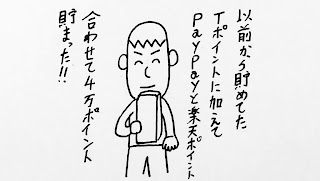 以前から貯めてた
Tポイントに加えて
PayPayと楽天ポイント
合わせて4万ポイント
貯まった!!